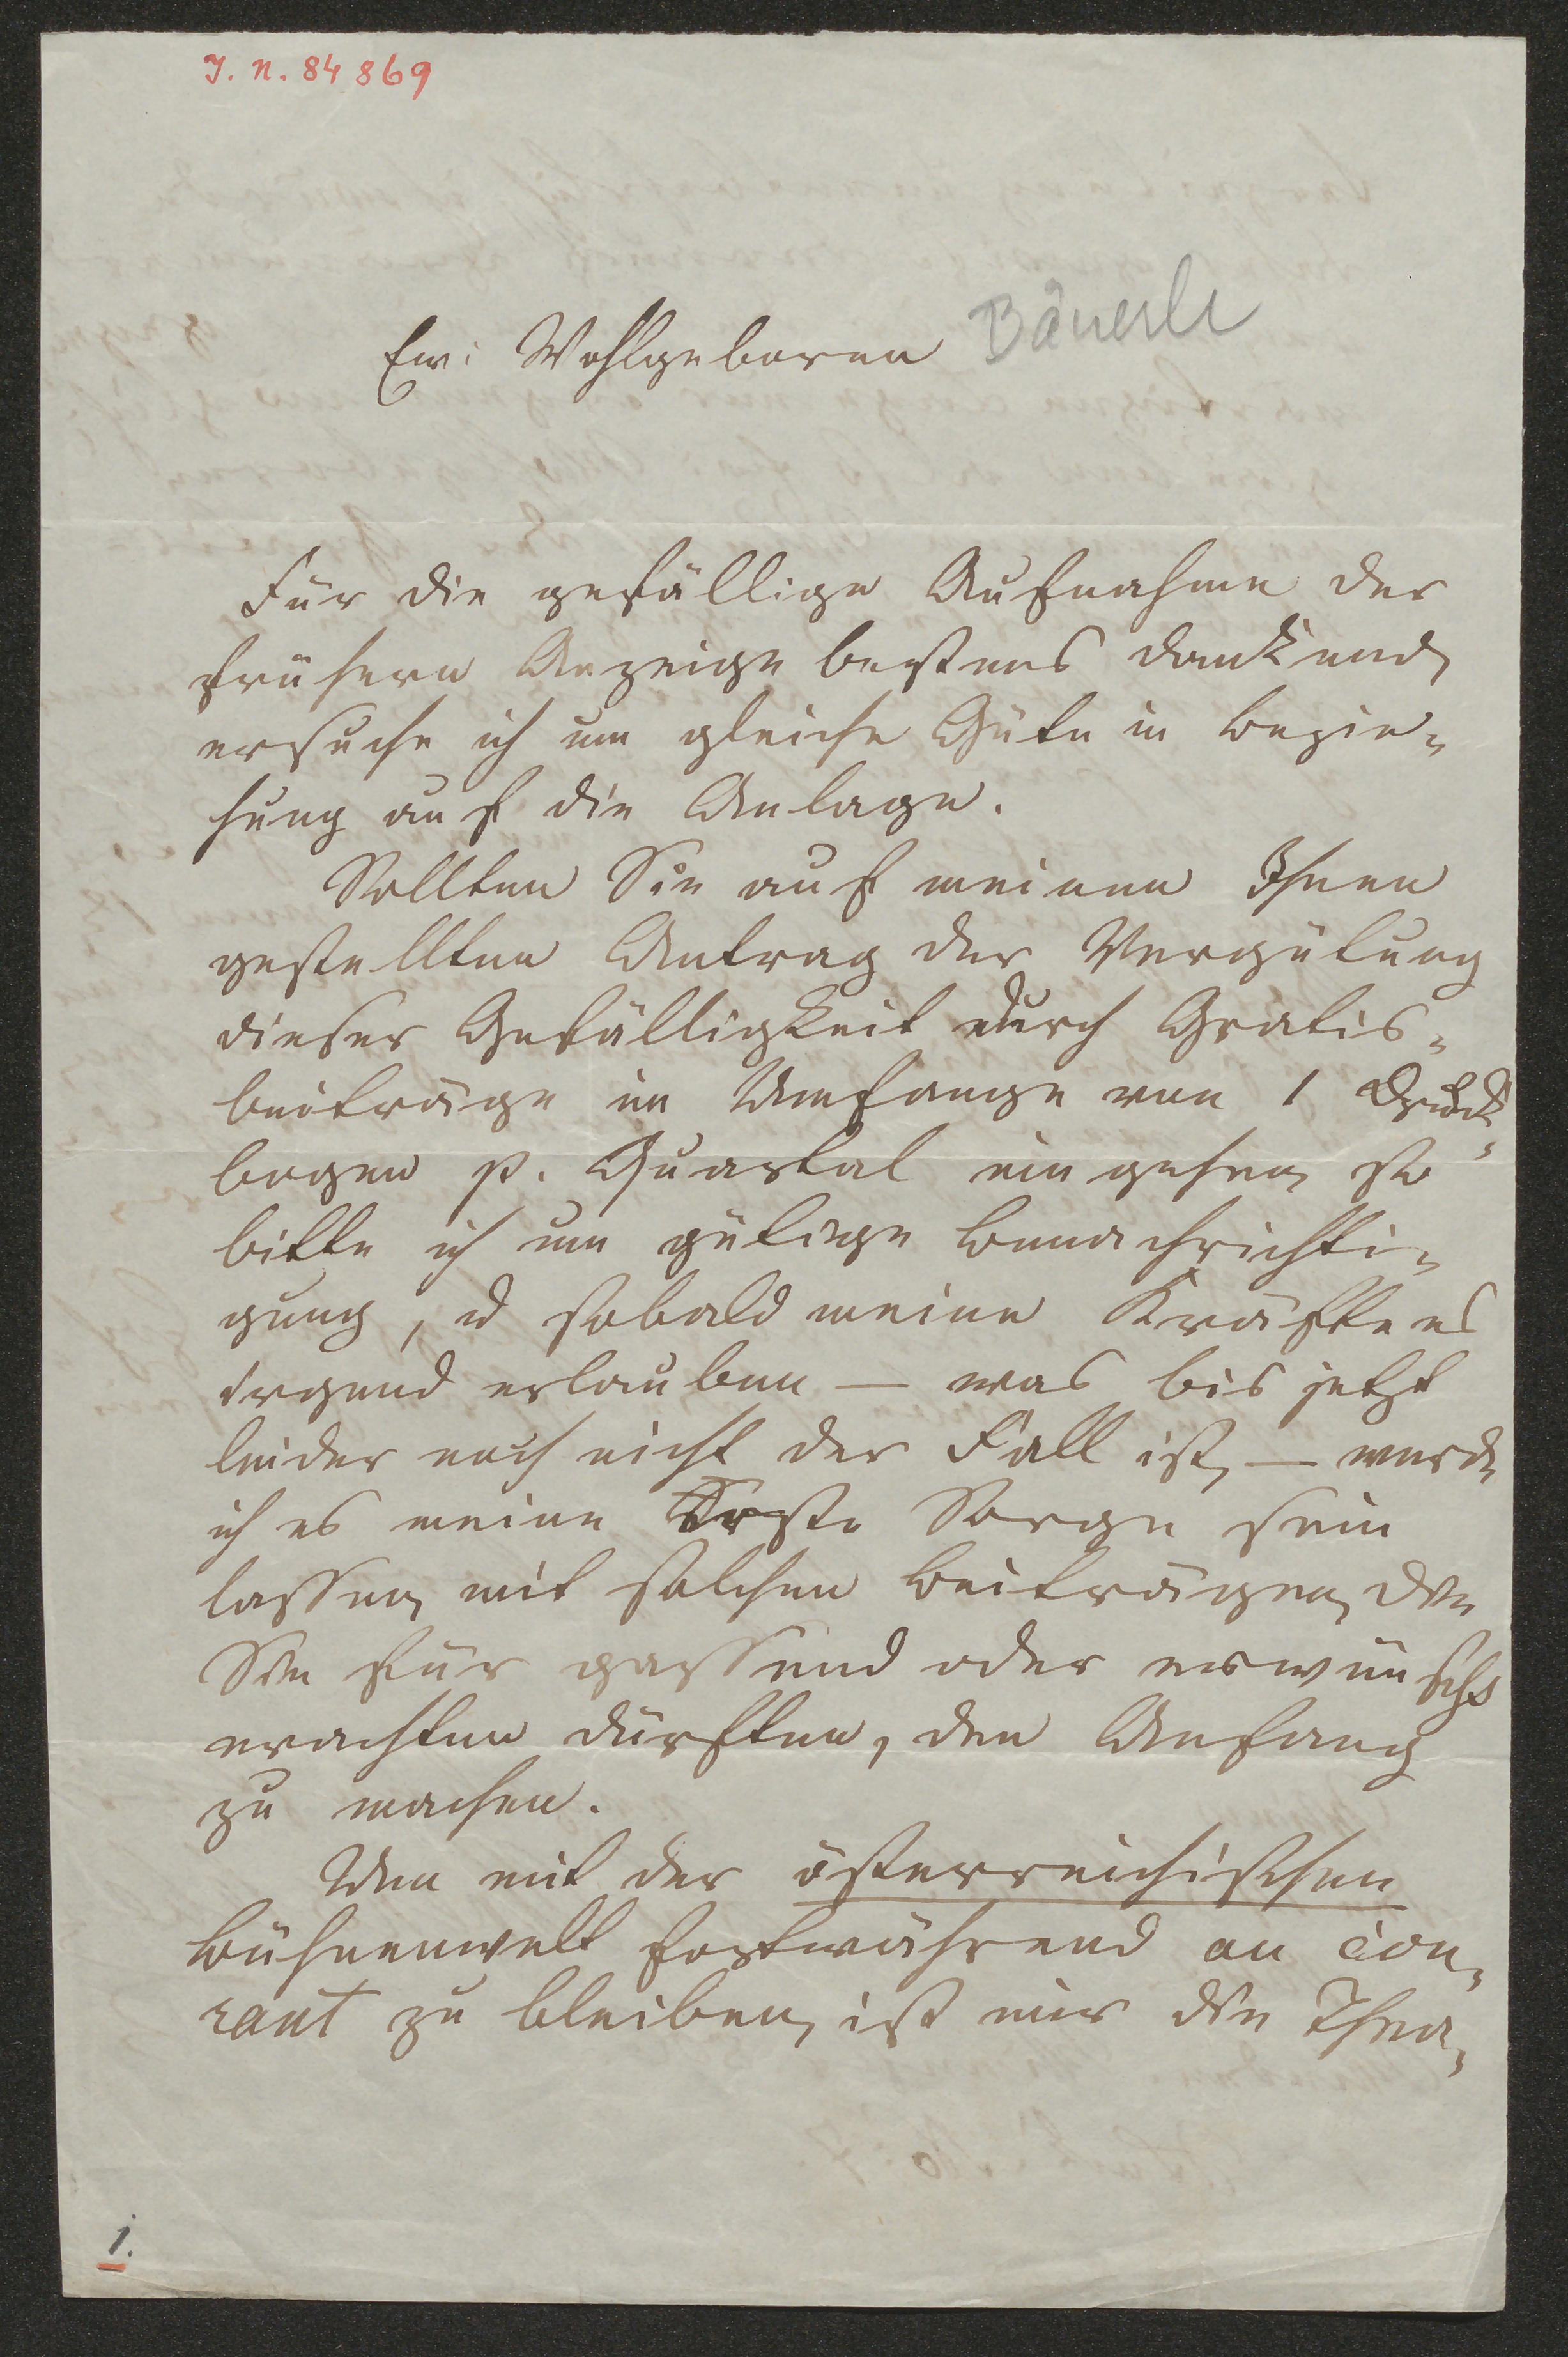 I. N. 84869
Ew: Wohlgeboren Bäuerle
Für die gefällige Aufnahme der
frühern Anzeige bestens dankend,
ersuche ich um gleiche Güte in Bezie-
hung auf die Anlage.
Sollten Sie auf meinen Ihnen
gestellten Antrag der Vergütung
dieser Gefälligkeit durch Gratis-
beiträge im Umfange von 1 Druck-
bogen p. Quartal eingehen, so
bitte ich um gütige Benachrichti-
gung, u sobald meine Kräfte es
irgend erlauben — was bis jetzt
leider noch nicht der Fall ist, — werde
ich es meine Erste Sorge sein
lassen, mit solchen Beiträgen, die
Sie für passend oder erwünscht
erachten dürften, den Anfang
zu machen.
Um mit der österreichischen
Bühnenwelt fortwährend au cou-
rant zu bleiben, ist mir die Thea-
1.